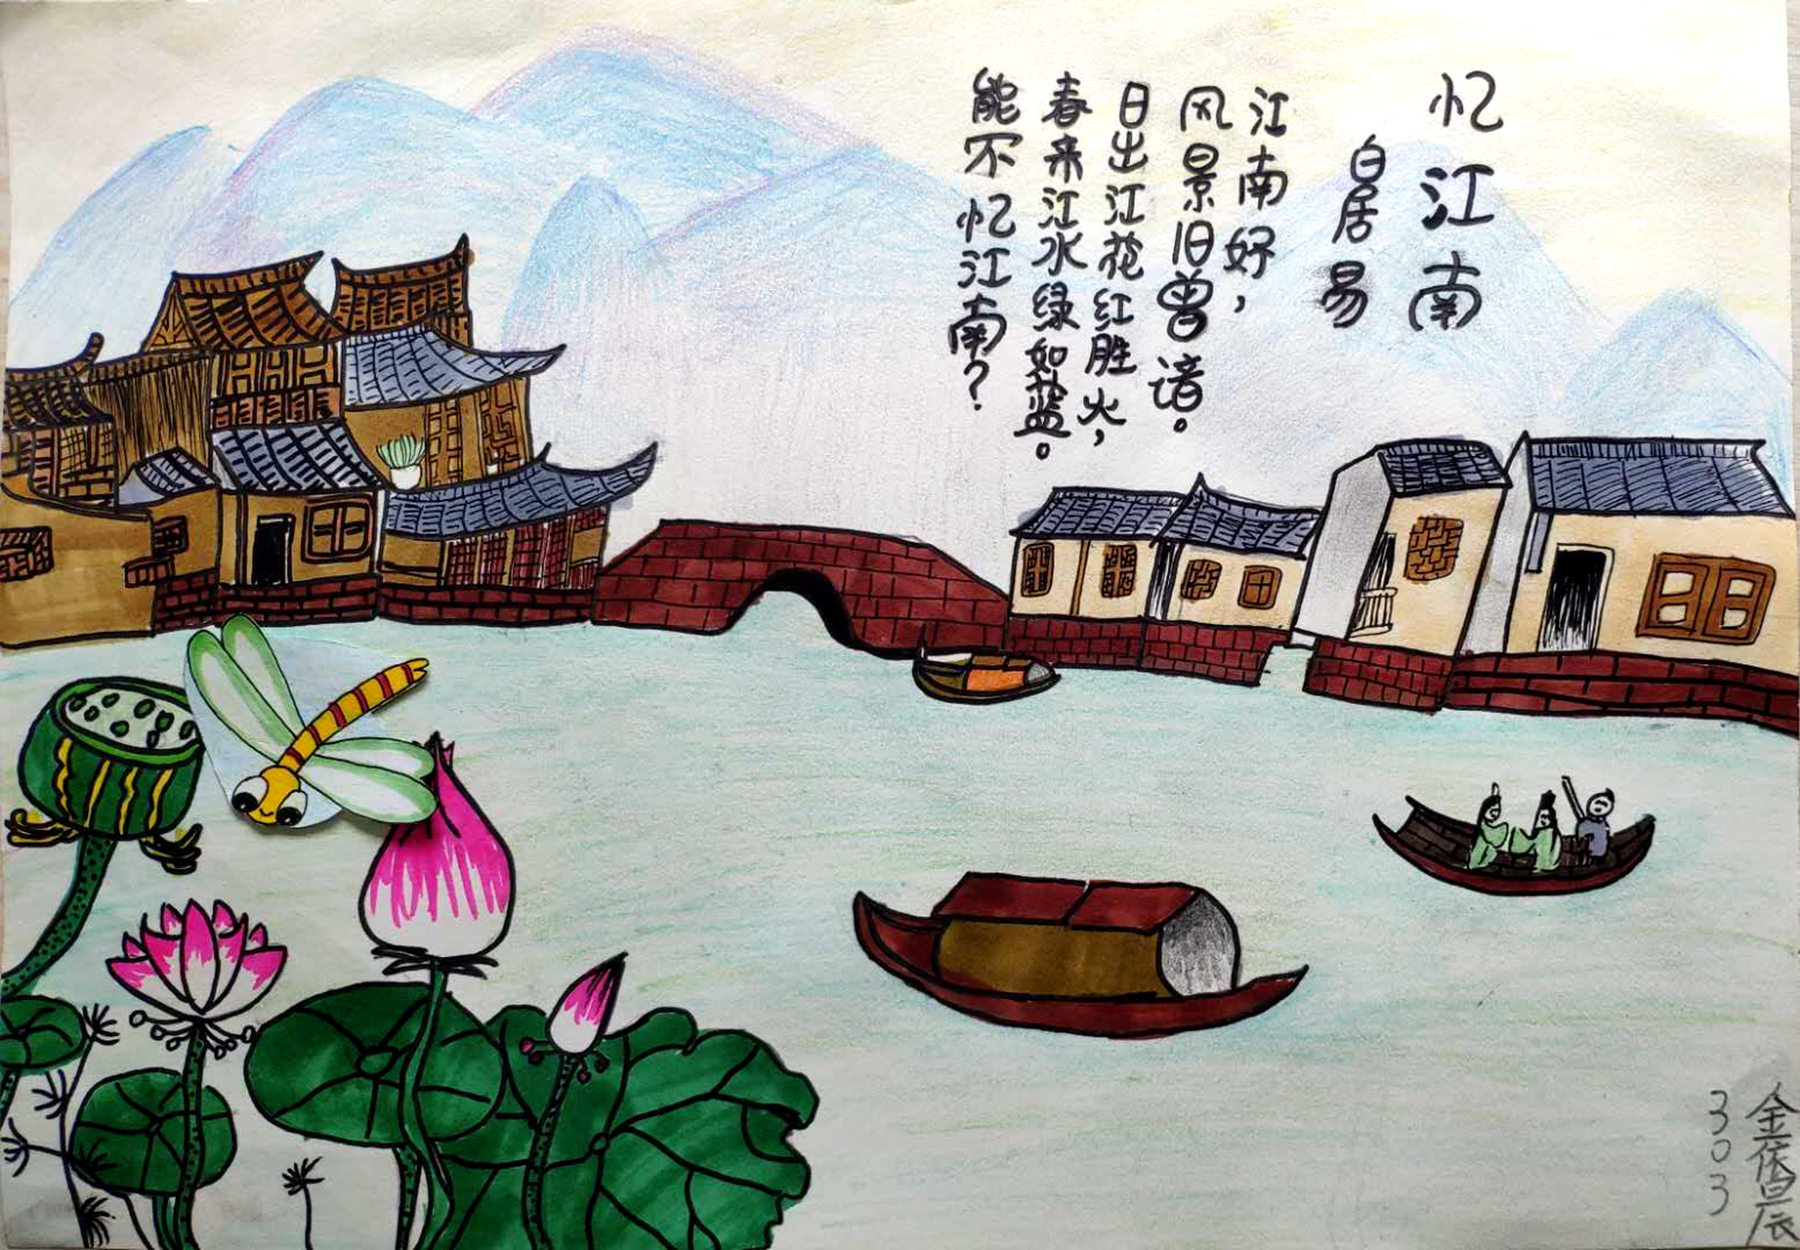 忆江南
白居易
江南好，
风景旧曾谙。
日出江花红胜火，
春来江水绿如蓝。
能不忆江南？
金依晨
303